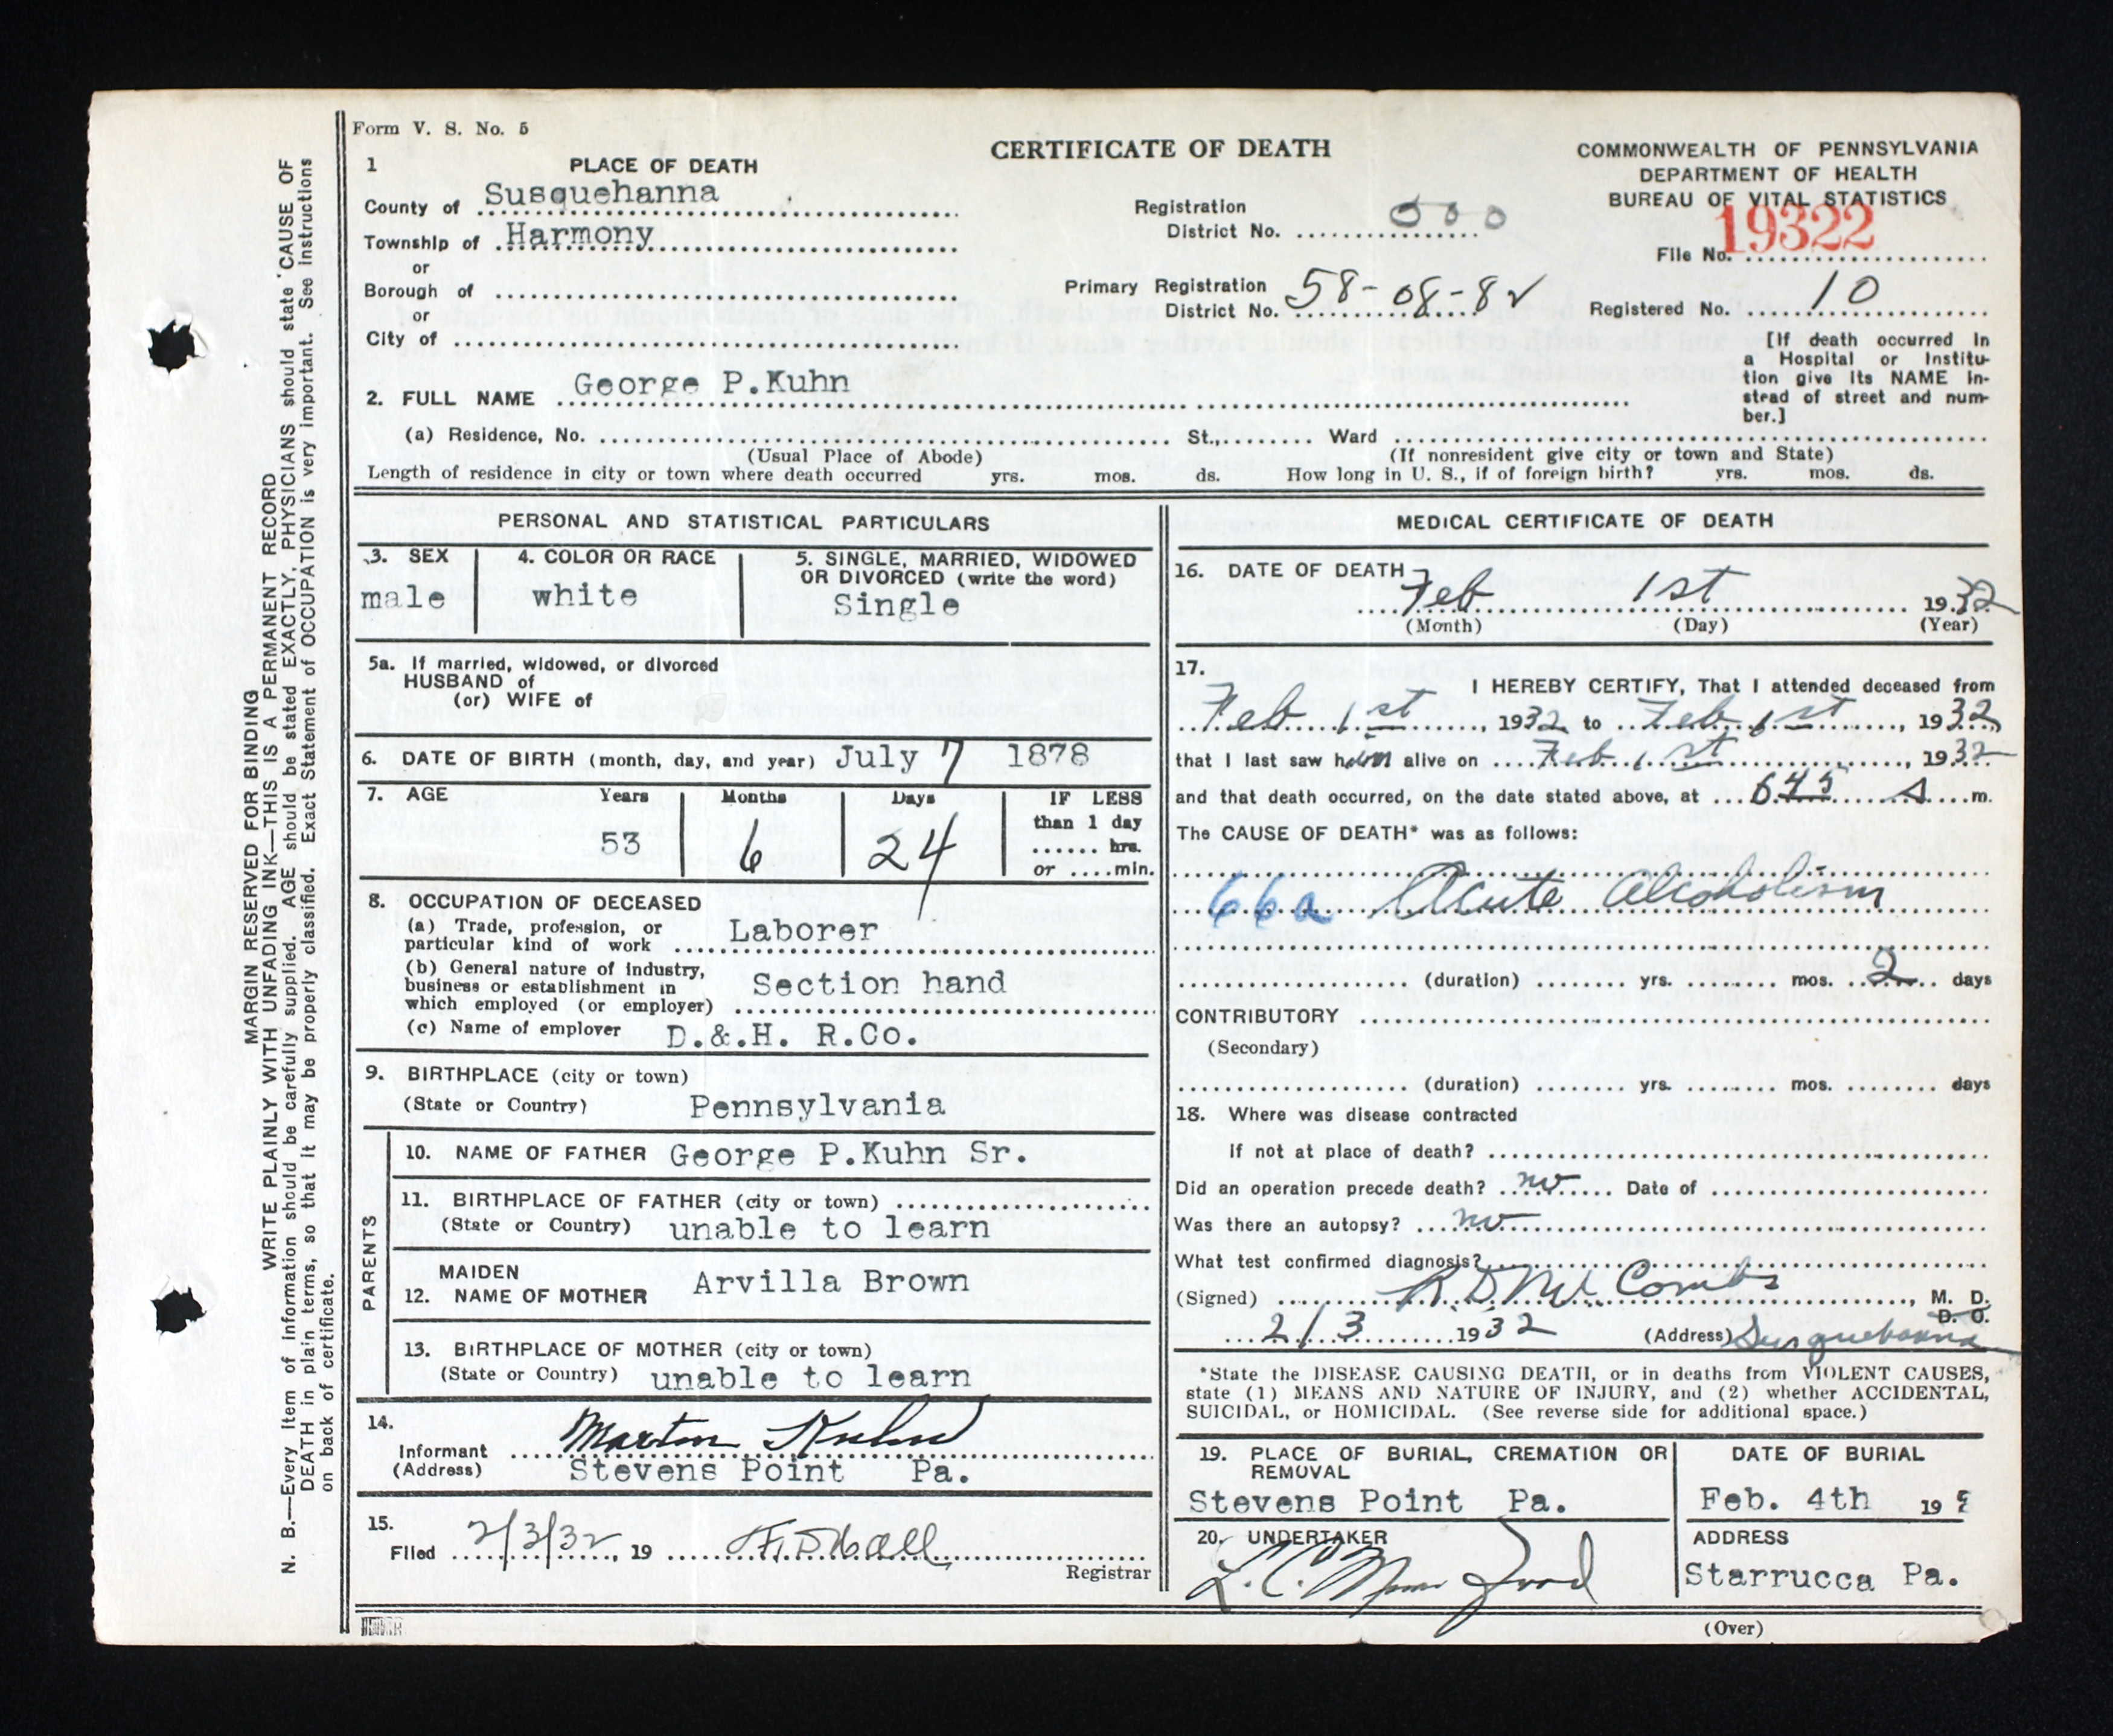 Form V. S. No. 5
CERTIFICATE OF DEATH
COMMONWEALTH OF PENNSYLVANIA
DEPARTMENT OF HEALTH
BUREAU OF VITAL STATISTICS
File No. 19322
1 PLACE OF DEATH
County of Susquehanna
Township of Harmony
or
Borough of
or
City of
Registration
District No. 000
Primary Registration
District No. 58-08-82
Registered No. 10
[If death occurred in
a Hospital or Institu-
tion give its NAME in-
stead of street and num-
ber.]
2. FULL NAME George P.Kuhn
(a) Residence, No. St., Ward
(Usual Place of Abode) (If nonresident give city or town and State)
Length of residence in city or town where death occurred yrs. mos. ds. How long in U. S., if of foreign birth? yrs. mos. ds.
PERSONAL AND STATISTICAL PARTICULARS
3. SEX 4. COLOR OR RACE 5. SINGLE, MARRIED, WIDOWED
OR DIVORCED (write the word)
male white Single
5a. If married, widowed, or divorced
HUSBAND of
(or) WIFE of
6. DATE OF BIRTH (month, day, and year) July 7 1878
7. AGE Years Months Days IF LESS
than 1 day
53 6 24 hrs.
or min.
8. OCCUPATION OF DECEASED
(a) Trade, profession, or
particular kind of work Laborer
(b) General nature of industry,
business or establishment in
which employed (or employer) Section hand
(c) Name of employer D.&.H. R.Co.
9. BIRTHPLACE (city or town)
(State or Country) Pennsylvania
PARENTS
10. NAME OF FATHER George P.Kuhn Sr.
11. BIRTHPLACE OF FATHER (city or town)
(State or Country) unable to learn
MAIDEN
12. NAME OF MOTHER Arvilla Brown
13. BIRTHPLACE OF MOTHER (city or town)
(State or Country) unable to learn
14.
Informant Martin Kuhn
(Address) Stevens Point Pa.
15.
Filed 2/3/32, 19
Registrar
MEDICAL CERTIFICATE OF DEATH
16. DATE OF DEATH
Feb 1st 1932
(Month) (Day) (Year)
17.
I HEREBY CERTIFY, That I attended deceased from
Feb 1st, 1932 to Feb 1st, 1932
that I last saw him alive on Feb 1st, 1932
and that death occurred, on the date stated above, at 645 A m.
The CAUSE OF DEATH* was as follows:
66a Acute Alcoholism
(duration) yrs. mos. 2 days
CONTRIBUTORY
(Secondary)
(duration) yrs. mos. days
18. Where was disease contracted
If not at place of death?
Did an operation precede death? no Date of
Was there an autopsy? no
What test confirmed diagnosis?
(Signed) R. D. McCombs, M. D.
D. O.
2/3 1932 (Address) Susquehanna
*State the DISEASE CAUSING DEATH, or in deaths from VIOLENT CAUSES,
state (1) MEANS AND NATURE OF INJURY, and (2) whether ACCIDENTAL,
SUICIDAL, or HOMICIDAL. (See reverse side for additional space.)
19. PLACE OF BURIAL, CREMATION OR
REMOVAL
Stevens Point Pa.
DATE OF BURIAL
Feb. 4th 19
20. UNDERTAKER
ADDRESS
Starrucca Pa.
(Over)
MARGIN RESERVED FOR BINDING
WRITE PLAINLY WITH UNFADING INK—THIS IS A PERMANENT RECORD
N. B.—Every item of information should be carefully supplied. AGE should be stated EXACTLY. PHYSICIANS should state CAUSE OF
DEATH in plain terms, so that it may be properly classified. Exact Statement of OCCUPATION is very important. See instructions
on back of certificate.